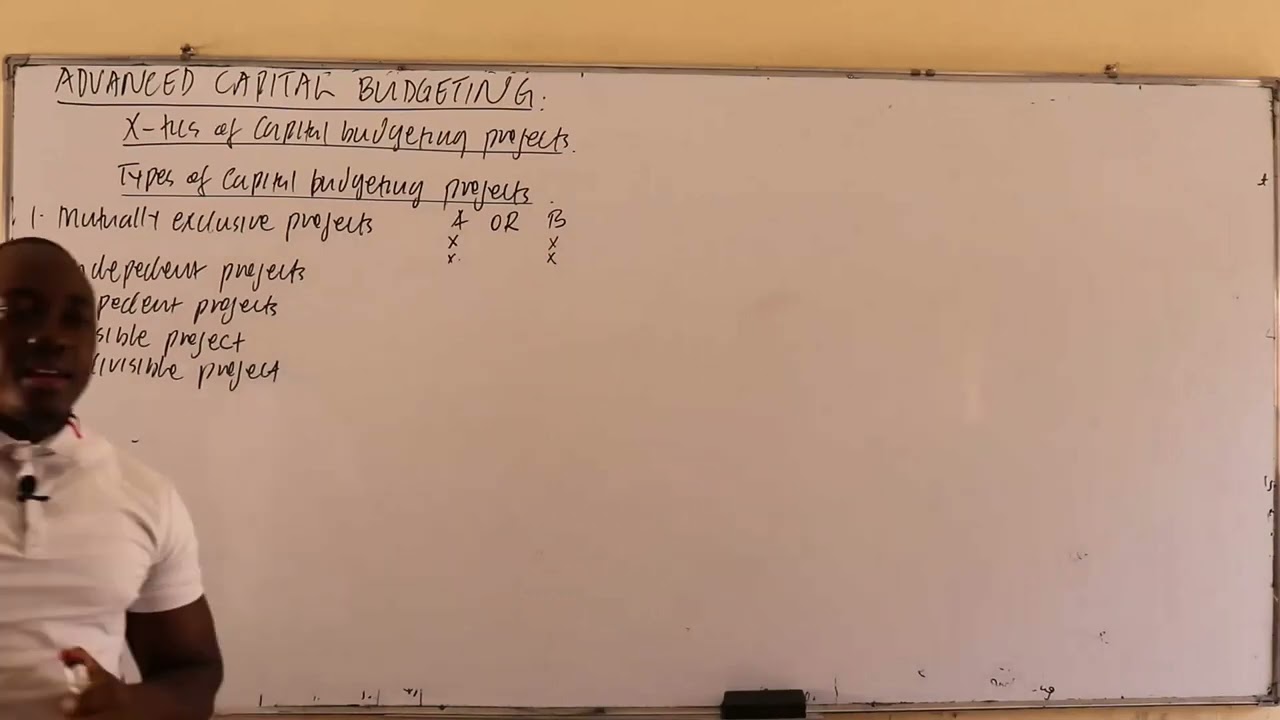 ADVANCED CAPITAL BUDGETING.
X-tics of capital budgeting projects.
Types of capital budgeting projects.
1. Mutually exclusive projects A OR B
x x
x. x
ndepedent projects
pedent projects
sible project
divisible project